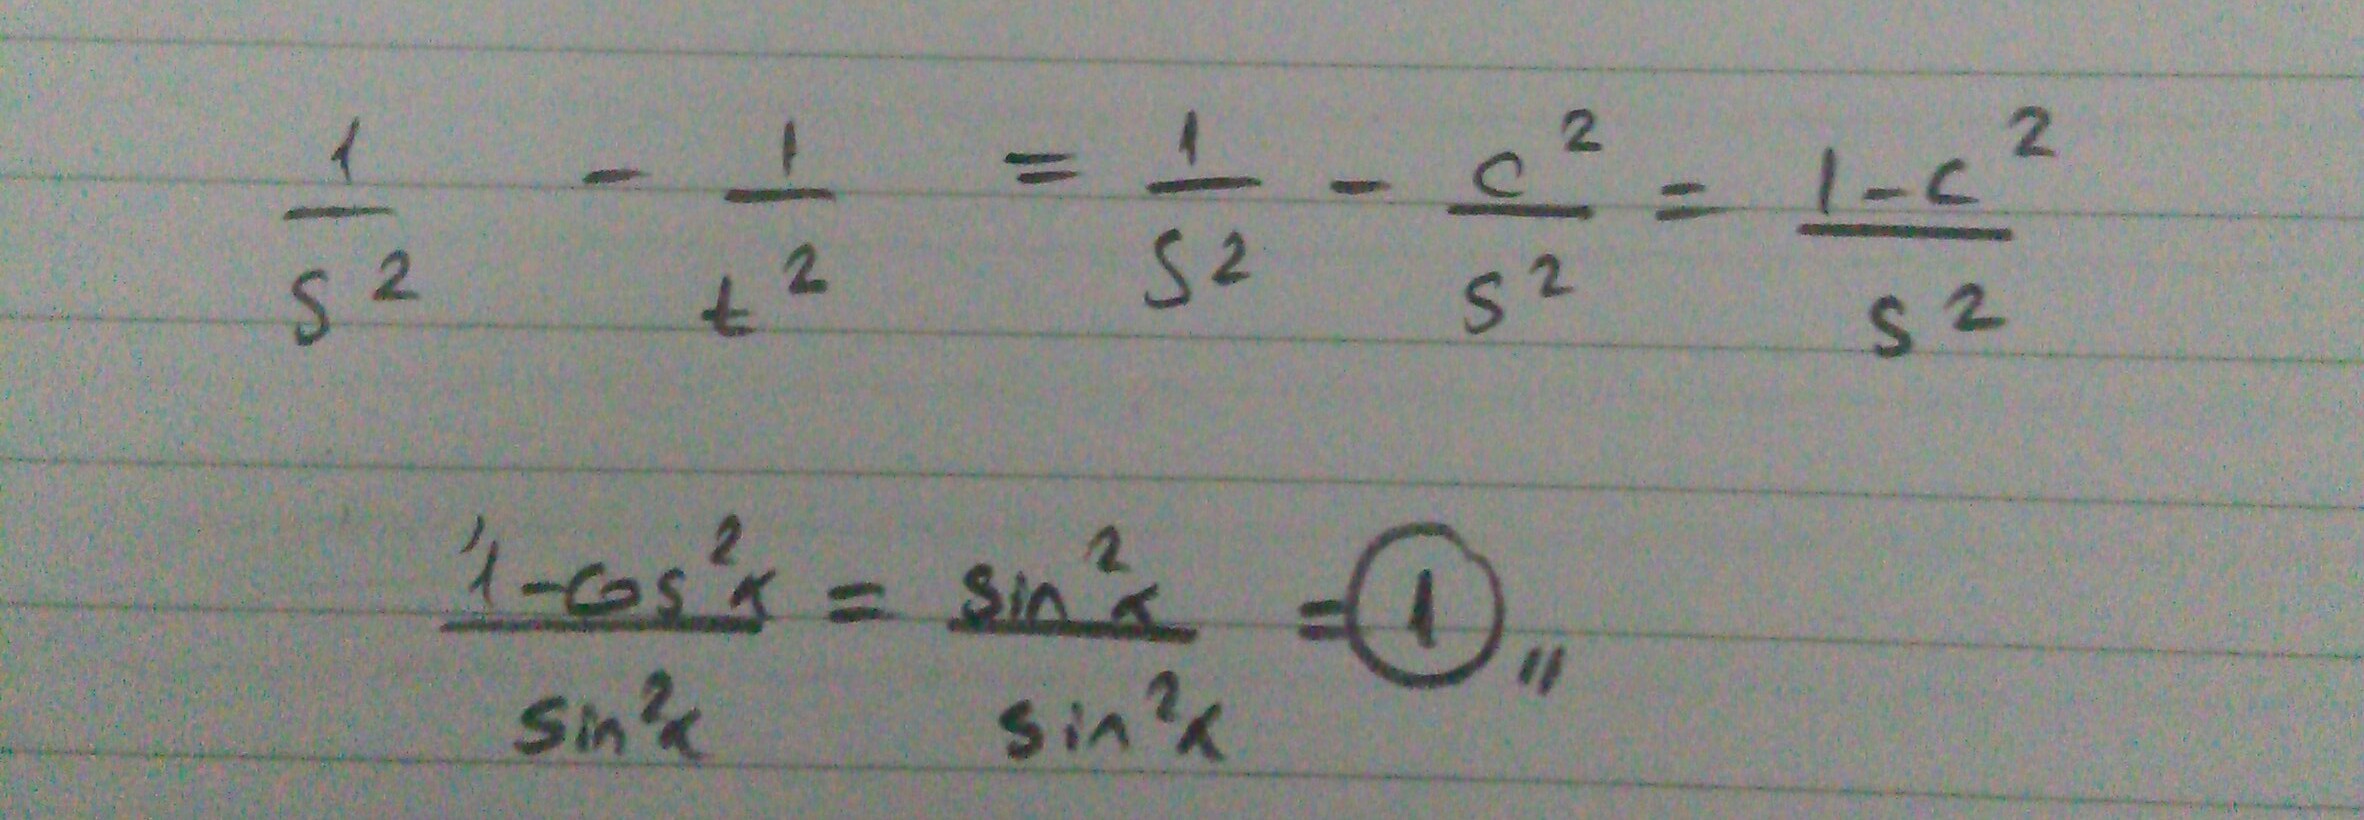 1/s² - 1/t² = 1/s² - c²/s² = (1-c²)/s²
(1-cos²α)/(sin²α) = (sin²α)/(sin²α) = 1 〃